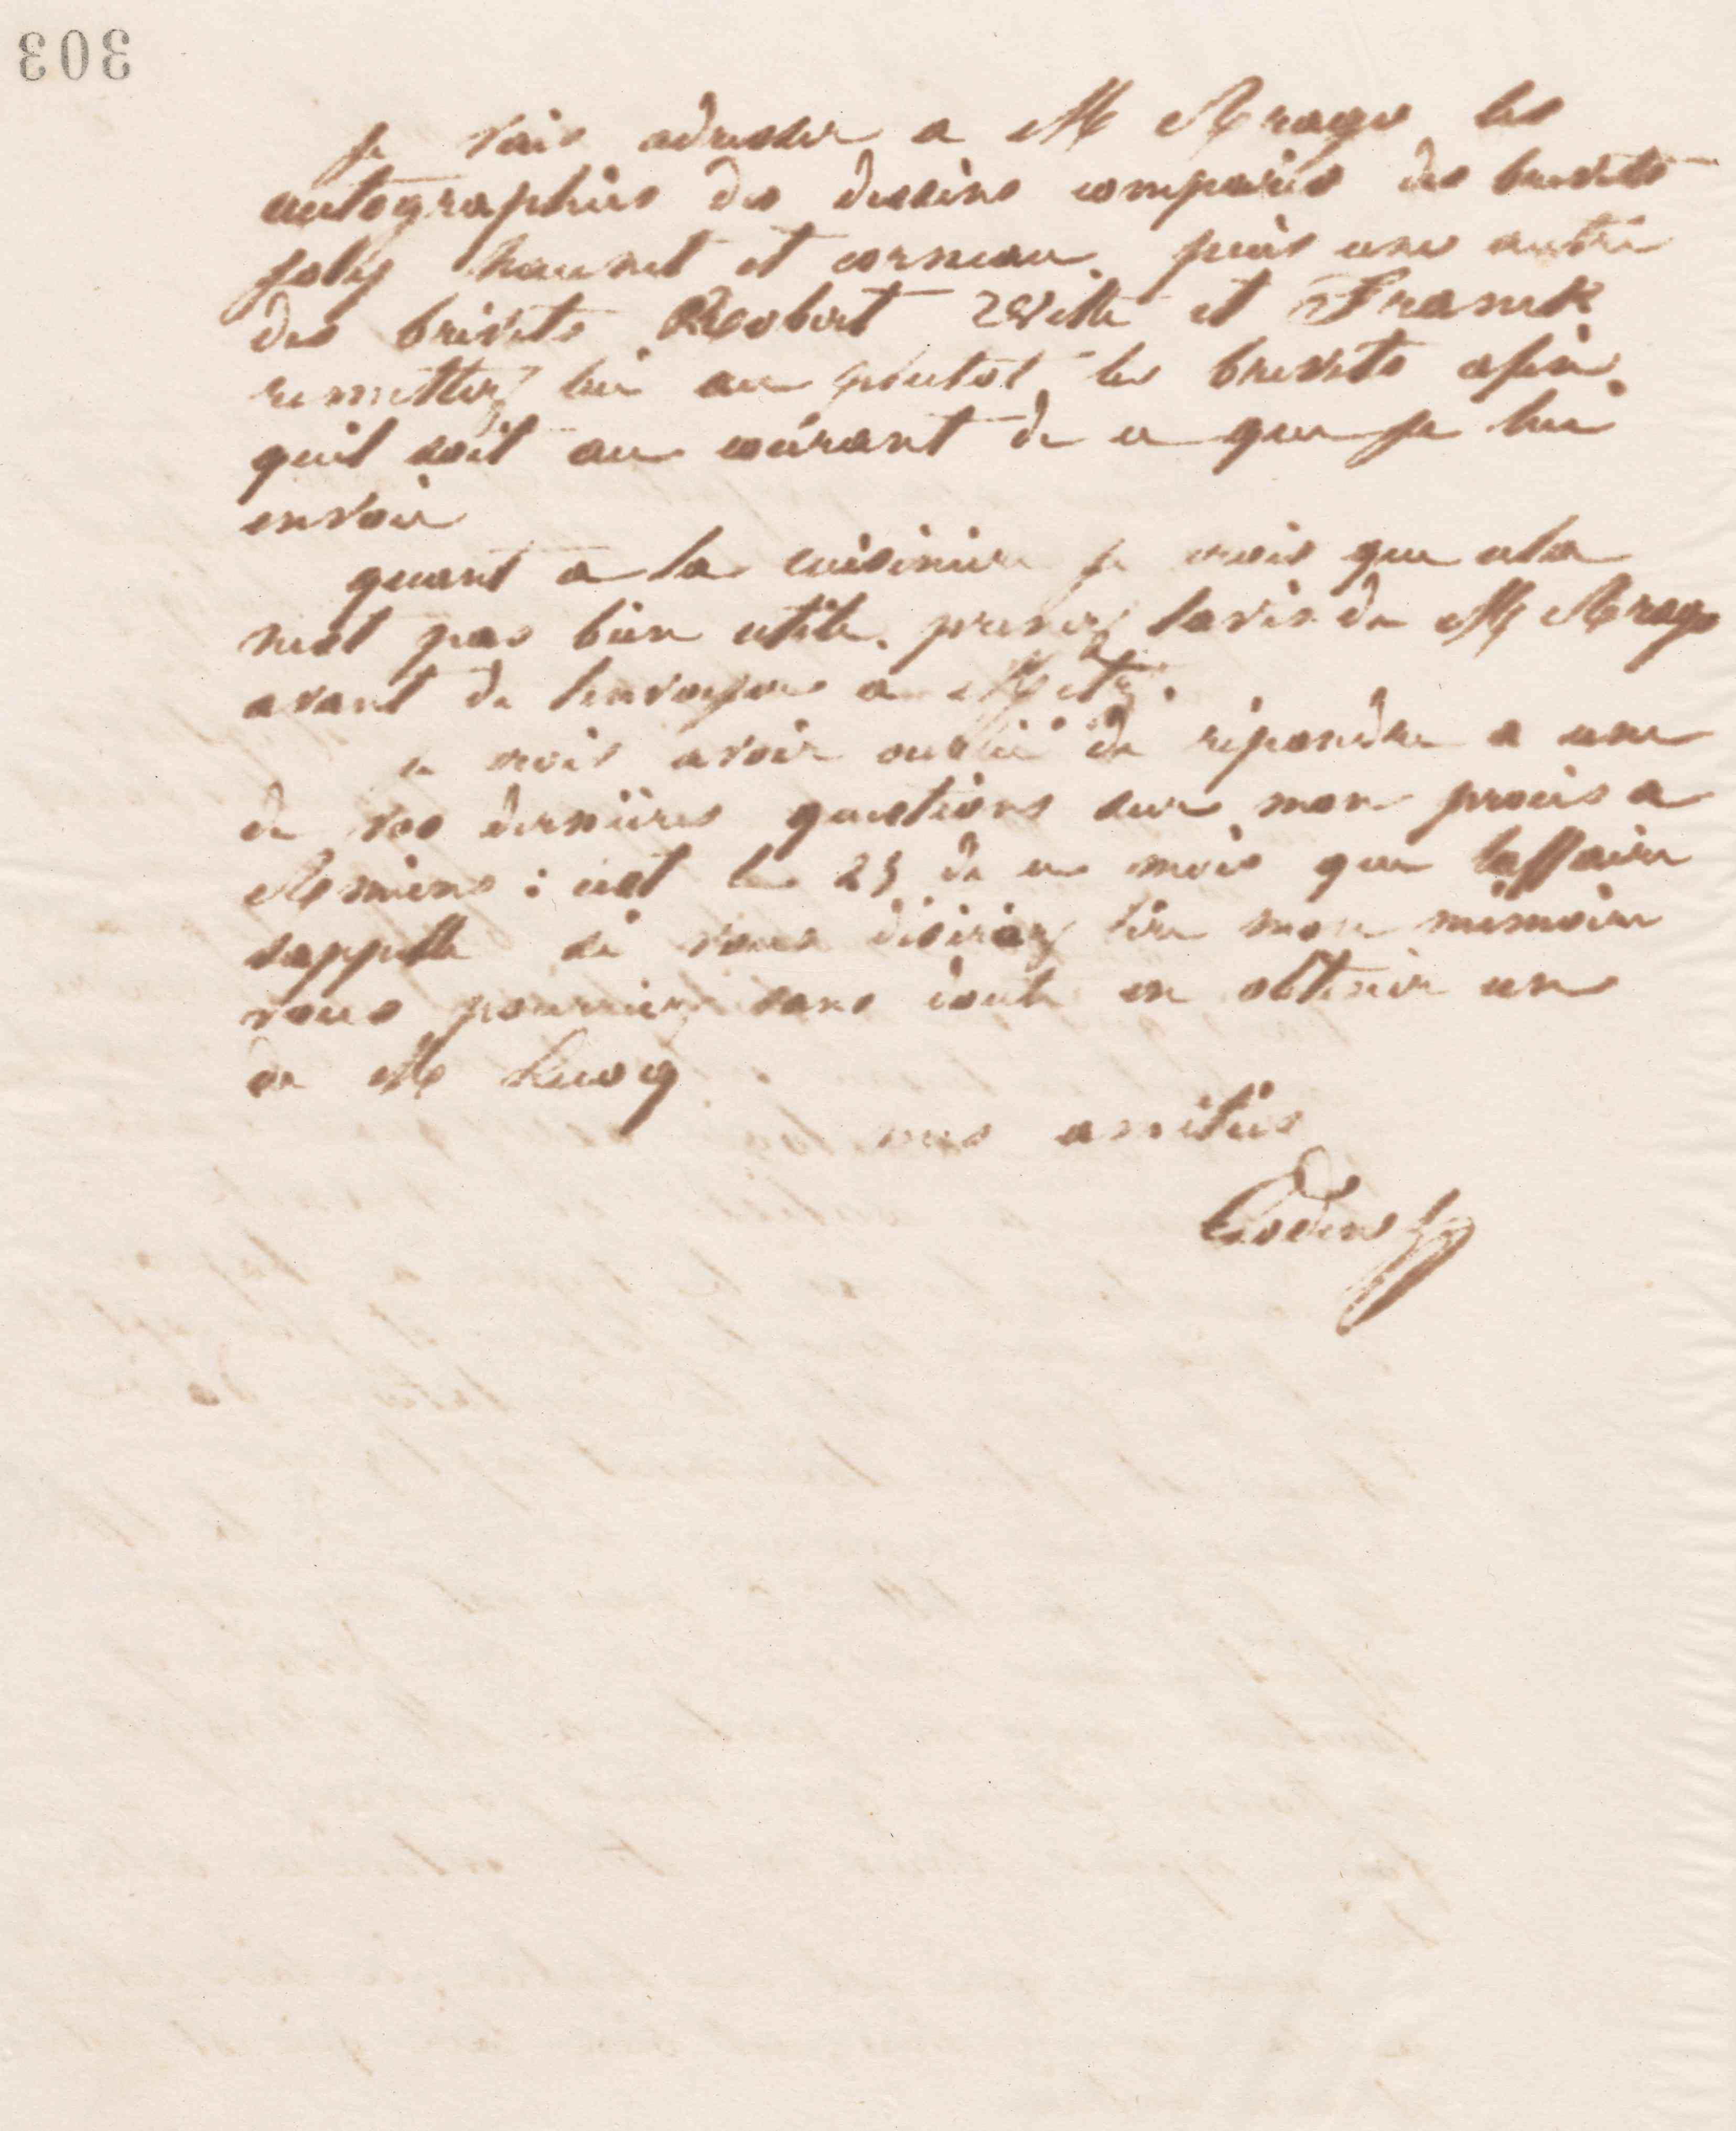 303
je vais adresser a M Arago les
autographies des dessins comparés des brevets
joly hauret et corneau. puis une autre
des brevets Robert Witte et Franck
remettez lui au plutot les brevets afin
quil soit au courant de ce que je lui
envoie
quant a la cuisinière je crois que cela
nest pas bien utile. prenez lavis de M Arago
avant de lenvoyer a Metz.
je crois avoir oublié de répondre a une
de vos dernières questions sur mon procès a
Amiens : cest le 25 de ce mois que laffaire
sappelle si vous désirez lire mon mémoire
vous pourriez sans doute en obtenir un
de M
mes amitiés
Godin